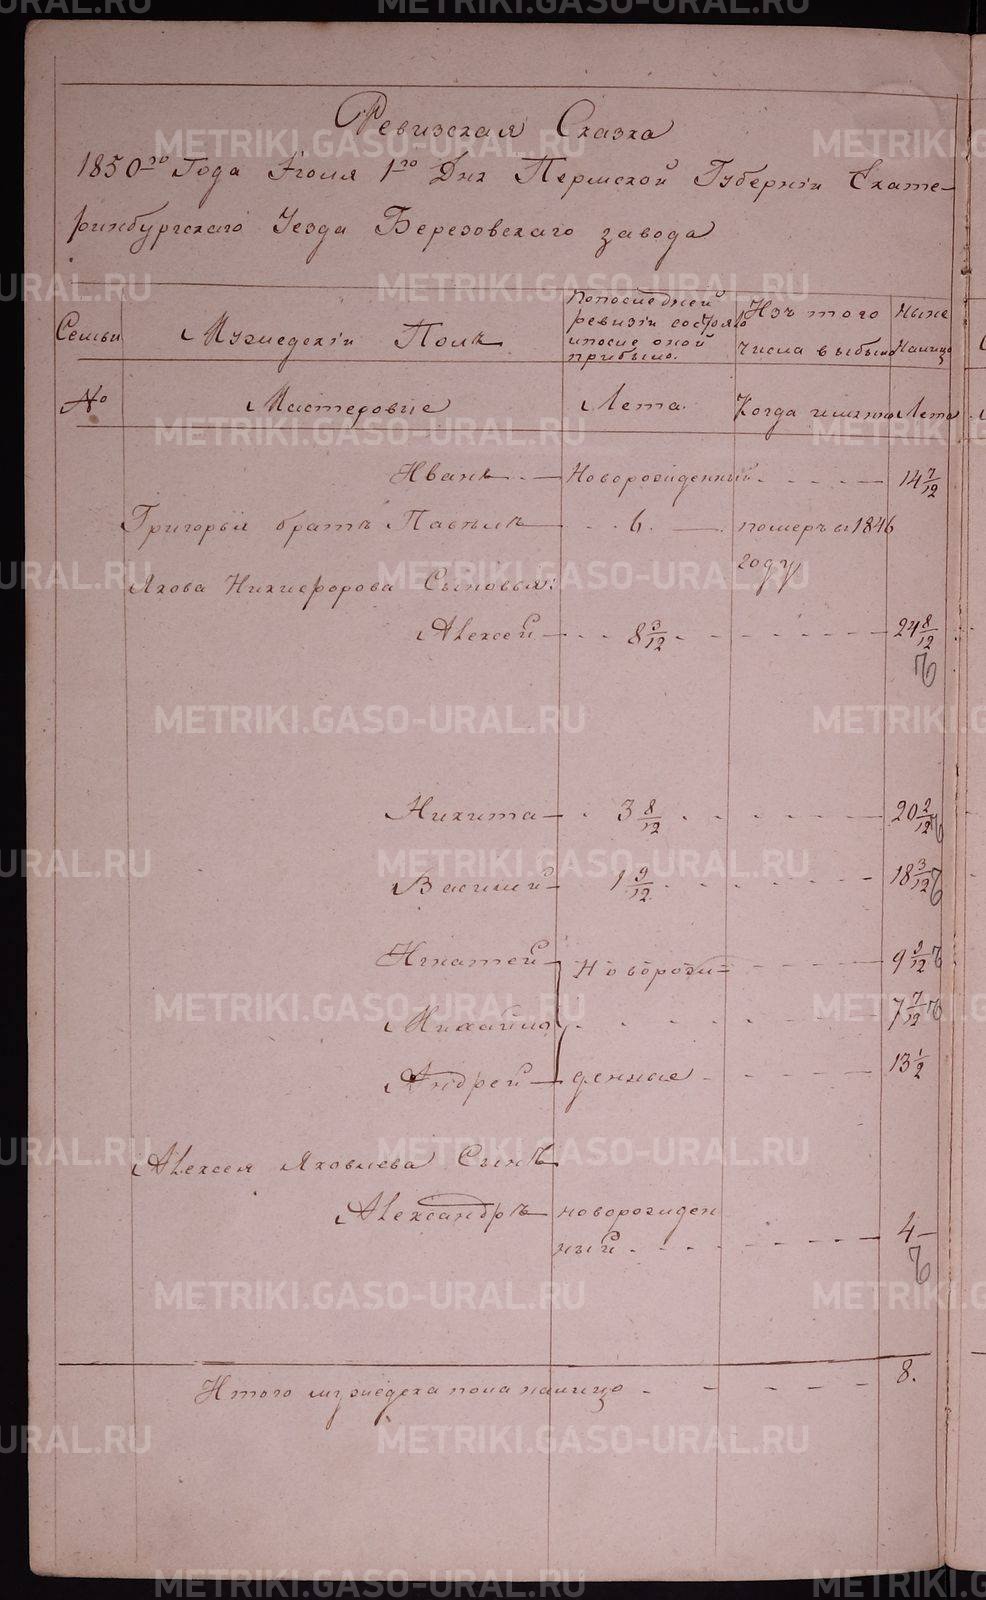 Ревизская Сказка
1850го Года Іюля 1го Дня Пермской Губерніи Екате-
ринбургскаго Уезда Березовскаго завода
Семьи
Мужескій Полъ
попоследней ревизіи состояло ипосле оной прибыло.
Изъ того числа выбыло
Ныне Налицо
№
Мастеровые
Лета.
Когда имянно
Лета
Иванъ — Новорожденный - - - - 14 7/12
Григорья братъ Павелъ — 6. — померъ въ 1846
году
Якова Никифорова Сыновья:
Алексей — 8 3/12 - - - - 24 8/12
Никита — 3 8/12 - - - - 20 2/12
Василий — 1 9/12 - - - - 18 3/12
Игнатей — Новорож= - - - 9 9/12
Михайло - - - - 7 7/12
Андрей — денные - - - - 13 1/2
Алексея Яковлева Сынъ
Александръ — новорожден
ный - - - - 4 —
Итого мужеска пола налицо - - - - 8.
METRIKI.GASO-URAL.RU